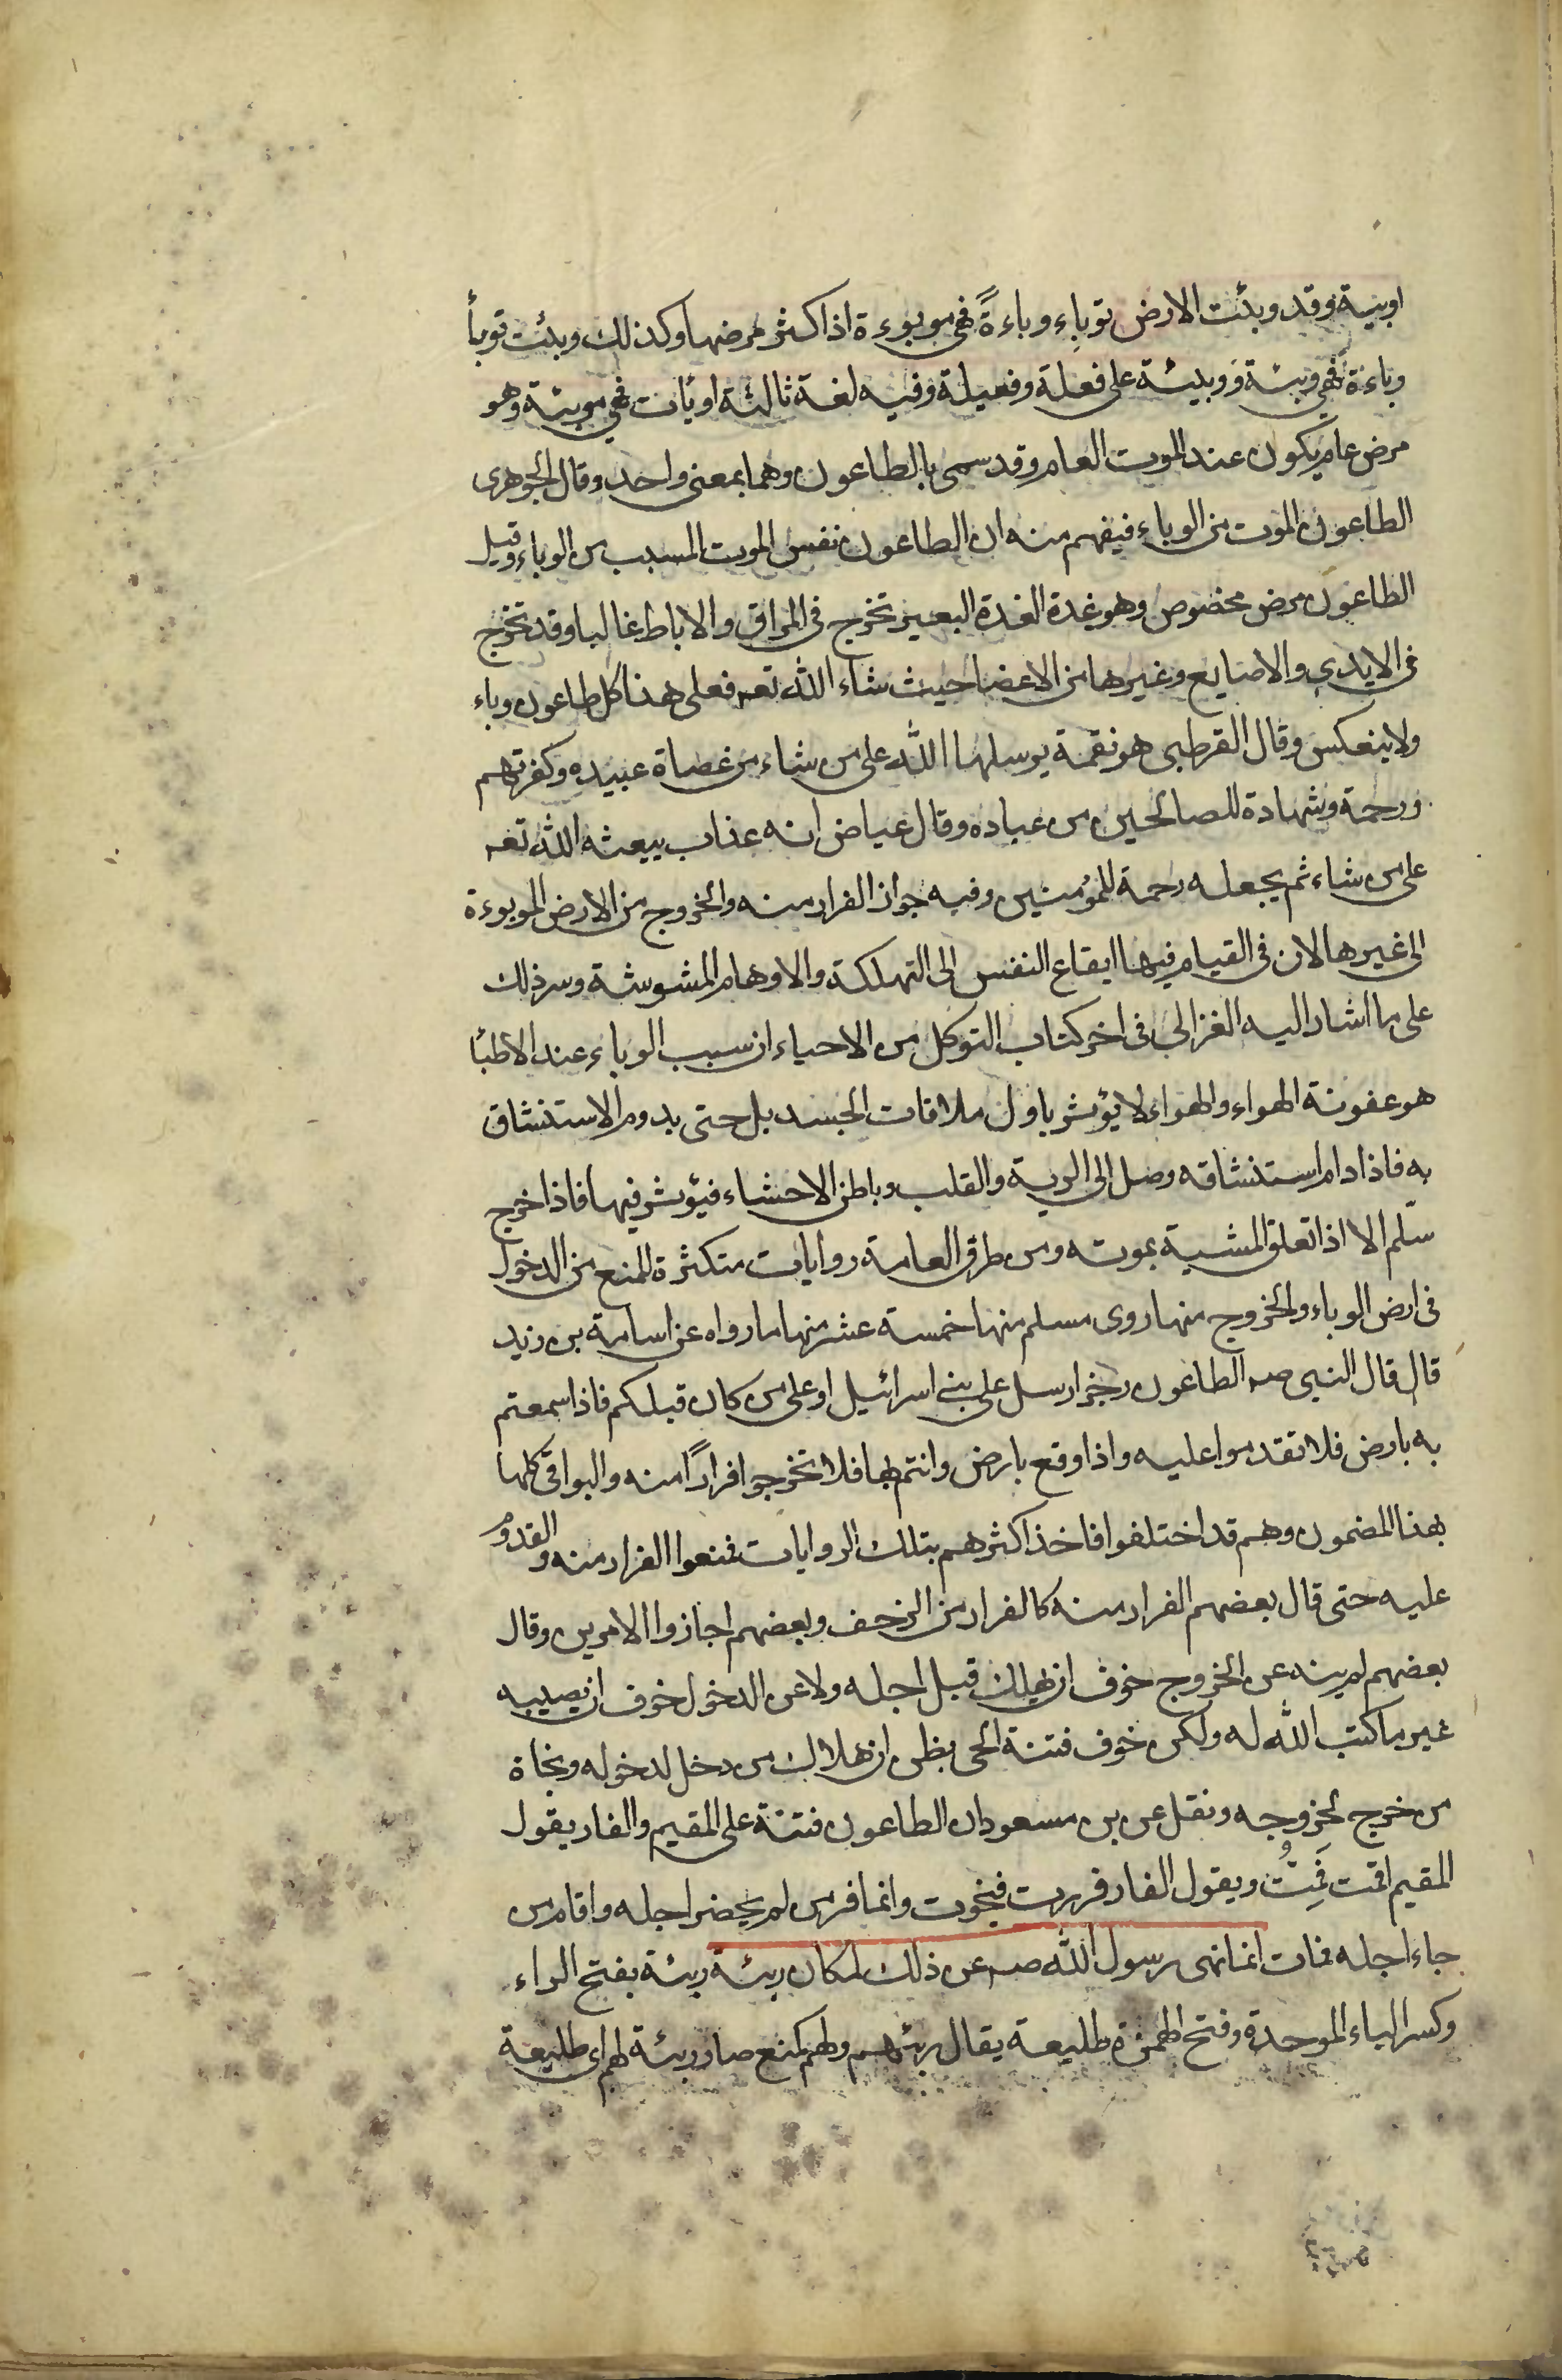 اوبية وقد وبئت الارض توباء وباءةً فهي موبوءة اذا كثر مرضها وكذلك وبئت توبأ
وباءة فهي وبئة ووبيئة على فعلة وفعيلة وفيه لغة ثالثة اوبأت فهي موبئة وهو
مرض عام يكون عند الموت العام وقد سمى بالطاعون وهما بمعنى واحد وقال الجوهرى
الطاعون الموت من الوباء فيفهم منه ان الطاعون نفس الموت المسبب من الوباء وقيل
الطاعون مرض مخصوص وهو غدة الغدة البعير تخرج فى المراق والاباط غالبا وقد تخرج
فى الايدي والاصابع وغيرها من الاعضا حيث شاء الله تعه فعلى هذا كل طاعون وباء
ولا ينعكس وقال القرطبى هو نقمة يرسلها الله على من شاء من عصاة عبيده وكفرتهم
ورحمة وشهادة للصالحين من عباده وقال عياض انه عذاب يبعثه الله تعه
على من شاء ثم يجعله رحمة للمؤمنين وفيه جواز الفرار منه والخروج من الارض الموبوءة
الى غيرها لان فى القيام فيها ايقاع النفس الى التهلكة والاوهام المشوشة وسر ذلك
على ما اشار اليه الغزالي فى اخر كتاب التوكل من الاحياء ان سبب الوباء عند الاطبا
هو عفونة الهواء والهواء لا يؤثر باول ملاقات الجسد بل حتى يدوم الاستنشاق
به فاذا دام استنشاقه وصل الى الرية والقلب وباطن الاحشاء فيؤثر فيها فاذا خرج
سلّم الا اذا تعلق المشية بموته ومن طرق العامة روايات متكثرة للمنع من الدخول
فى ارض الوباء والخروج منها روى مسلم منها خمسة عشر منها ما رواه عن اسامة بن زيد
قال قال النبى صه الطاعون رجز ارسل على بنى اسرائيل او على من كان قبلكم فاذا سمعتم
به بارض فلا تقدموا عليه واذا وقع بارض وانتم بها فلا تخرجوا فرارًا منه والبواقى كلها
بهذا المضمون وهم قد اختلفوا فاخذ اكثرهم بتلك الروايات فمنعوا الفرار منه والقدوم
عليه حتى قال بعضهم الفرار منه كالفرار من الزحف وبعضهم اجازوا الامرين وقال
بعضهم لم ينه عن الخروج خوف ان يهلك قبل اجله ولا عن الدخول خوف ان يصيبه
غير ما كتب الله له ولكن خوف فتنة الحى يظن ان هلاك من دخل لدخوله ونجاة
من خرج لخروجه ونقل عن بن مسعود ان الطاعون فتنة على المقيم والفار يقول
المقيم اقمت فَمِتُّ ويقول الفار فررت فنجوت وانما فر من لم يحضر اجله واقام من
جاء اجله فمات انما نهى رسول الله صه عن ذلك لمكان ربئة ربئة بفتح الراء
وكسر الباء الموحدة وفتح الهمزة طليعة يقال ربئهم ولهم كمنع صار ربئة لهم اى طليعة